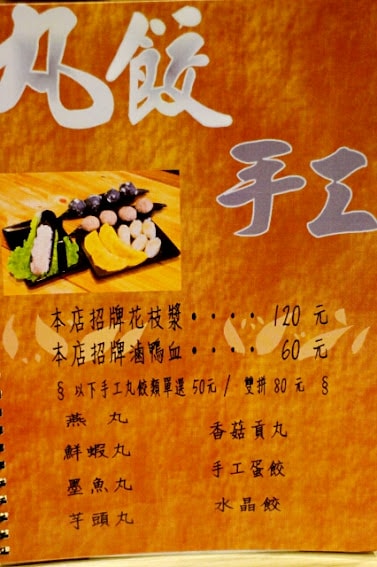 丸餃
手工
本店招牌花枝漿‧‧‧‧ 120 元
本店招牌滷鴨血‧‧‧‧ 60 元
§ 以下手工丸餃類單選 50元 / 雙拼 80 元 §
燕 丸
鮮蝦丸
墨魚丸
芋頭丸
香菇貢丸
手工蛋餃
水晶餃